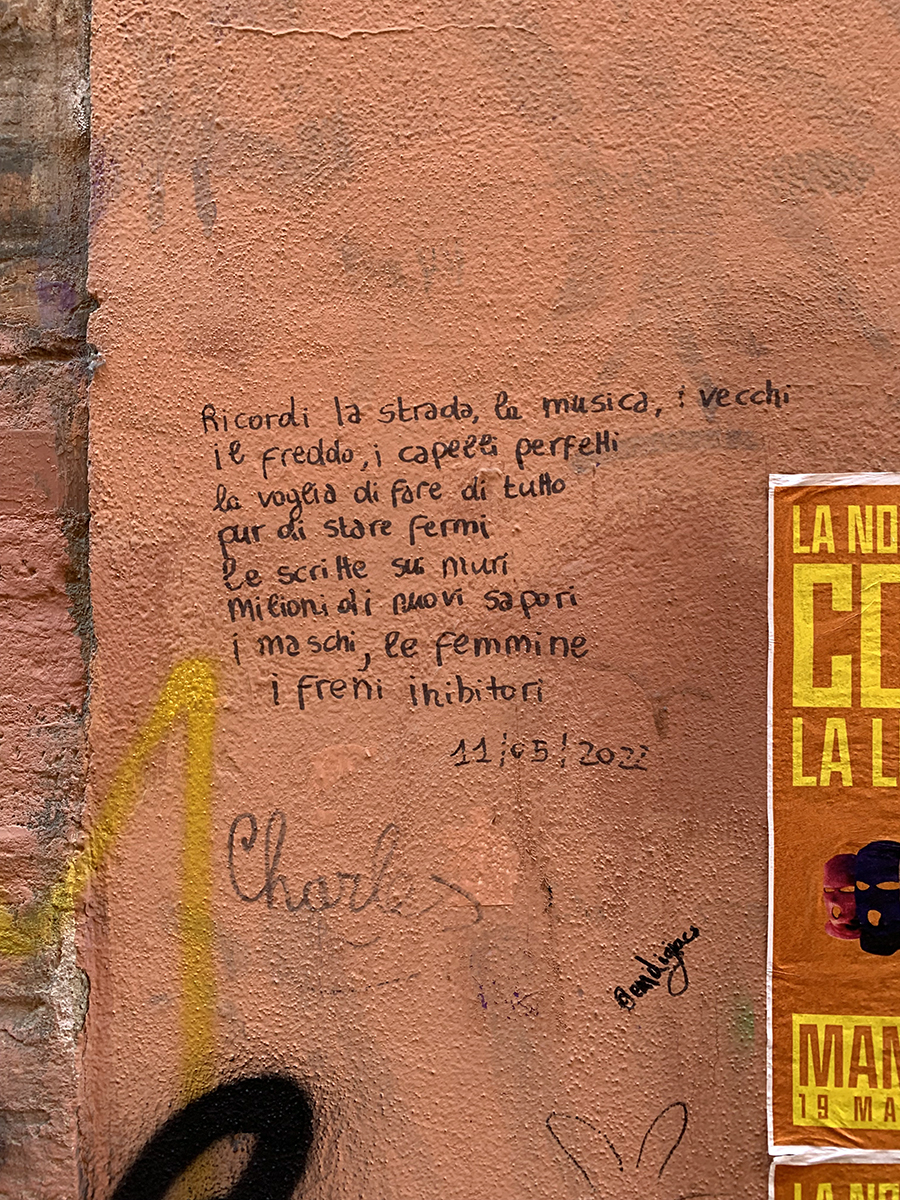 Ricordi la strada, la musica, i vecchi
il freddo, i capelli perfetti
la voglia di fare di tutto
pur di stare fermi
le scritte sui muri
milioni di nuovi sapori
i maschi, le femmine
i freni inibitori
11/05/2022
Charles
LA NO
CO
LA L
MAN
19 MA
LA NO